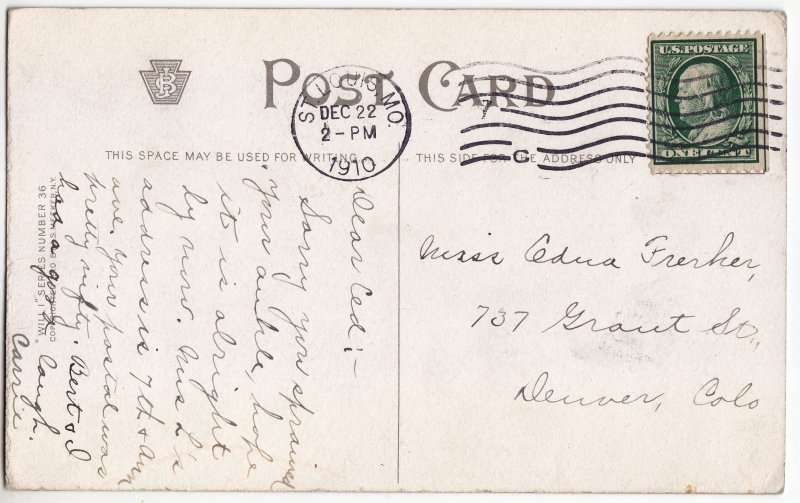 POST CARD
ST. LOUIS MO.
DEC 22
2-PM
1910
7
C
U.S. POSTAGE
ONE CENT
THIS SPACE MAY BE USED FOR WRITING
THIS SIDE FOR THE ADDRESS ONLY
Dear Ed! —
Sorry you sprained
your ankle, hope
it is alright
by now. Miss L's
address is 7th & Ann
ave. Your postal was
pretty nifty. Bert & I
had a good laugh.
Carrie
Miss Edna Frerker,
737 Grant St.,
Denver, Colo
"WILL I" SERIES NUMBER 36